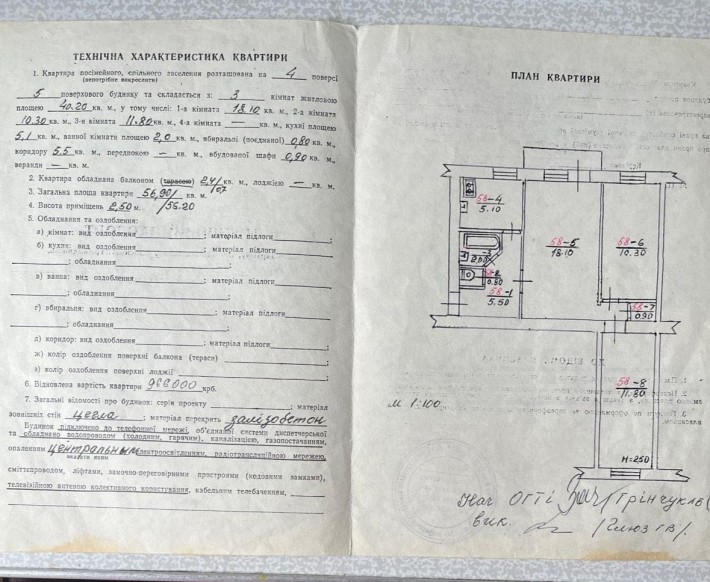 ТЕХНІЧНА ХАРАКТЕРИСТИКА КВАРТИРИ
1. Квартира посімейного, спільного заселення розташована на 4 поверсі
(непотрібне викреслити)
5 поверхового будинку та складається з: 3 кімнат житловою
площею 40.20 кв. м., у тому числі: 1-а кімната 18.10 кв. м., 2-а кімната
10.30 кв. м., 3-я кімната 11.80 кв. м., 4-а кімната — кв. м., кухні площею
5,1 кв. м., ванної кімнати площею 2,0 кв. м., вбиральні (поєднаної) 0,80 кв. м.,
коридору 5.5 кв. м., передпокою — кв. м., вбудованої шафи 0,90 кв. м.,
веранди — кв. м.
2. Квартира обладнана балконом (терасою) 2,4/0,7 кв. м., лоджією — кв. м.
3. Загальна площа квартири 56,90/ кв. м.
4. Висота приміщень 2,50 м. /55.20
5. Обладнання та оздоблення:
а) кімнат: вид оздоблення ; матеріал підлоги ;
б) кухня: вид оздоблення ; матеріал підлоги
; обладнання ;
в) ванна: вид оздоблення ; матеріал підлоги
; обладнання ;
г) вбиральня: вид оздоблення ; матеріал підлоги
; обладнання ;
д) коридор: вид оздоблення ; матеріал підлоги ;
ж) колір оздоблення поверхні балкона (тераси) ;
з) колір оздоблення поверхні лоджії
6. Відновлена вартість квартири крб.
7. Загальні відомості про будинок: серія проекту ; матеріал
зовнішніх стін цегла ; матеріал перекрить залізобетон
Будинок підключено до телефонної мережі, об'єднаної системи диспетчерської
та обладнано водопроводом (холодним, гарячим), каналізацією, газопостачанням,
опаленням центральным електроосвітленням, радіотрансляційною мережею,
вказати яким
сміттєпроводом, ліфтами, замочно-переговорними пристроями (кодовими замками),
телевізійною антеною колективного користування, кабельним телебаченням,
ПЛАН КВАРТИРИ
58-4
5.10
58-5
18.10
58-6
10.30
58-2
0.80
58-1
5.50
58-7
0.90
58-8
11.80
М 1:100
H=250
Нач ОГТІ
вик.